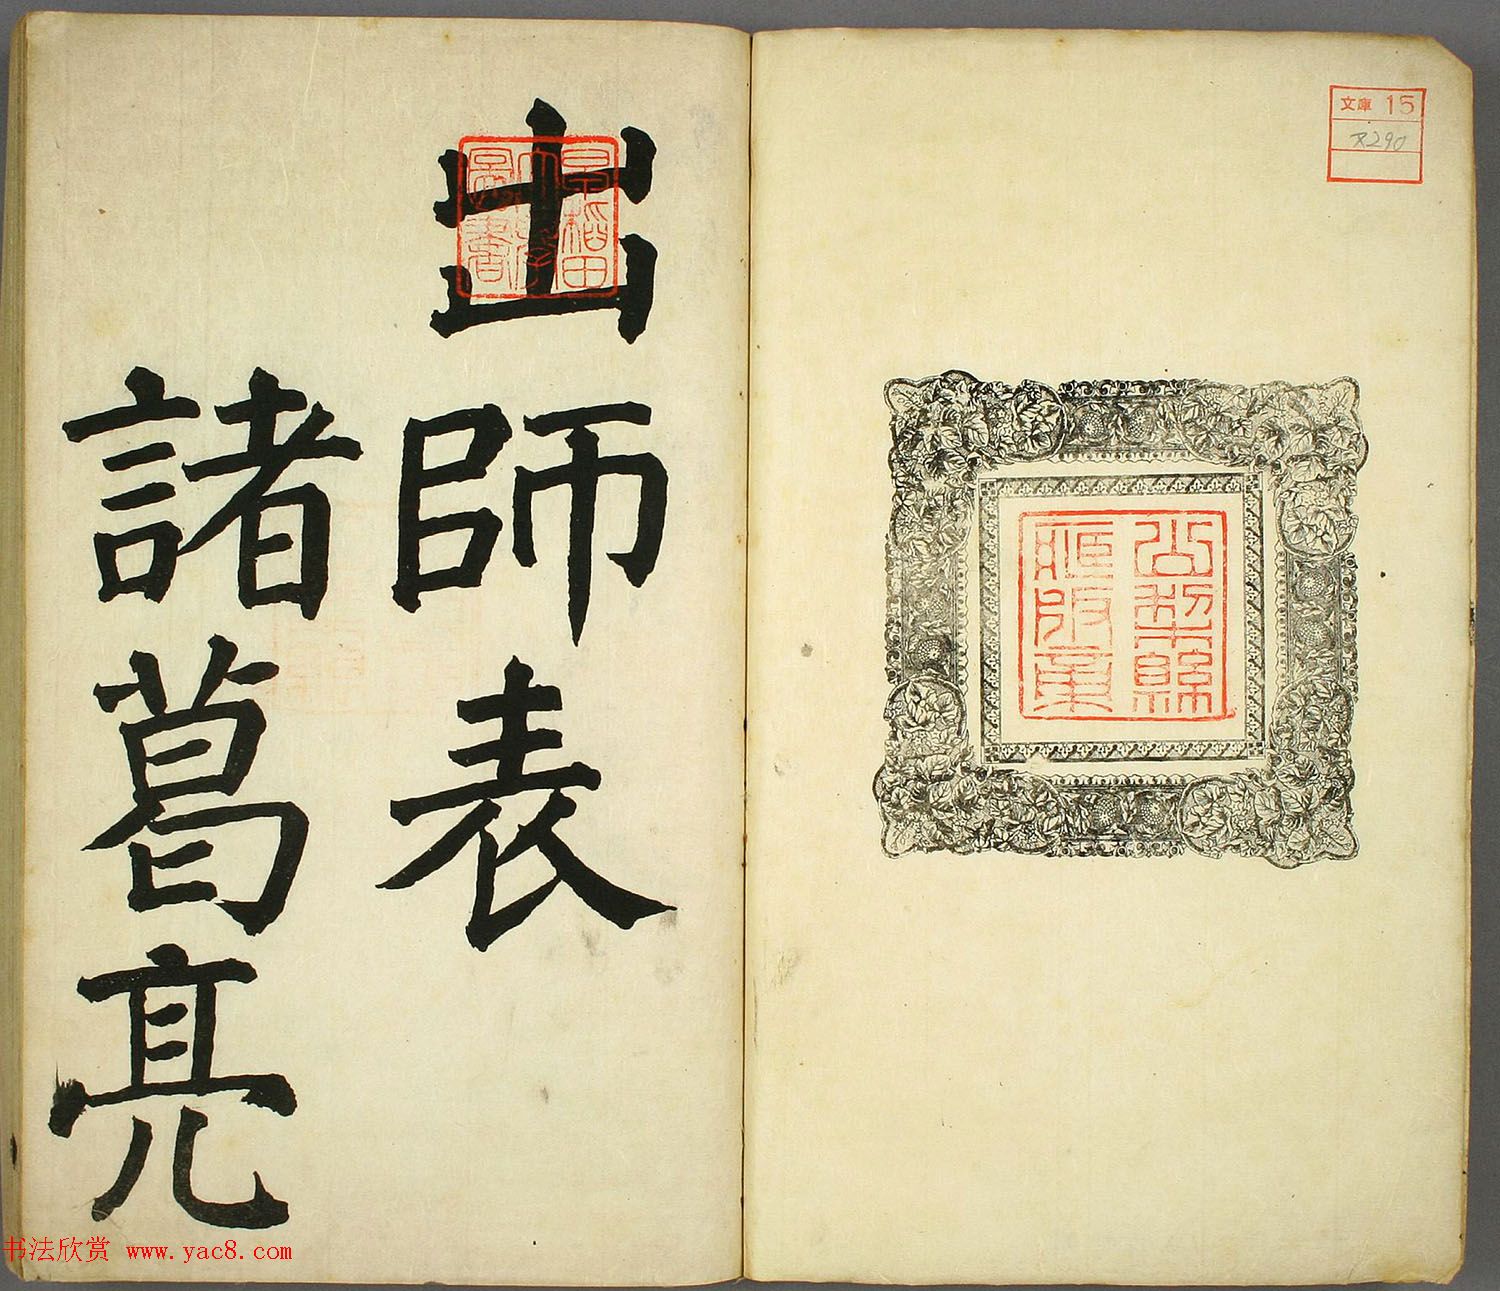 文庫 15
出師表
諸葛亮
早稲田
大学
図書
书法欣赏 www.yac8.com